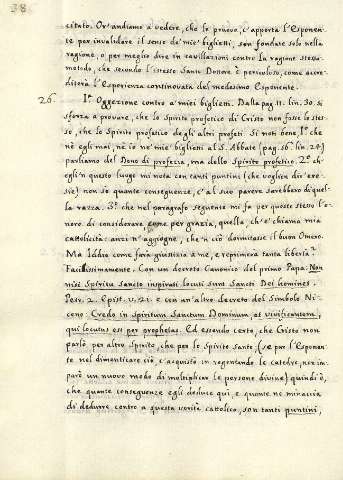 38
citato. Or'andiamo a vedere, che le pruove, c'apporta l'Esponen-
te per invalidare il senso de' miei biglietti, son fondate solo nella
ragione, o per meglio dire in cavillazioni contro la ragione stessa:
metodo, che secondo l'istesso Santo Dottore è pericoloso, come accre-
diterà l'esperienza continovata del medesimo Esponente.
26. I.a Oggezione contro a' miei biglietti. Dalla pag. 11. lin. 30. si
sforza a provare, che lo Spirito profetico di Cristo non fosse lo stes-
so, che lo Spirito profetico degli altri profeti. Si noti bene, 1.o che
nè egli mai, nè io ne' miei biglietti al S. Abbate (pag. 56. lin. 24)
parliamo del Dono di profezia, ma dello Spirito profetico. 2.o ch'
egli 'n questo luogo mi nota con tanti puntini (che voglion dir'ere-
sie) non so quante conseguenze, c'al suo parere sarebbero di quel-
la razza. 3.o che nel paragrafo seguente mi fa per questo stesso l'o-
nore di considerare come per grazia, quella, ch'e' chiama mia
cattolicità: anzi n'aggiogne, che 'n ciò dormitasse il buon Omero.
Ma Iddio come farà giustizia a me, e reprimerà tanta libertà?
Facilissimamente. Con un decreto Canonico del primo Papa. Non
nisi Spiritu Sancto inspirati locuti sunt Sancti Dei homines.
Petr. 2. Epist. v. 21. e con un'altro decreto del Simbolo Ni-
ceno. Credo in Spiritum Sanctum Dominum et vivificantem,
qui locutus est per prophetas. Ed essendo certo, che Cristo non
parlò per altro Spirito, che per lo Spirito Santo, (se pur l'Esponen-
te nel dimenticare ciò c'acquistò in regentando le catedre, non im-
parò un nuovo modo di multiplicar le persone divine) quindi è,
che quante conseguenze egli deduce qui, e quante ne minaccia
di dedurre contro a questa verità cattolica, son tanti puntini,